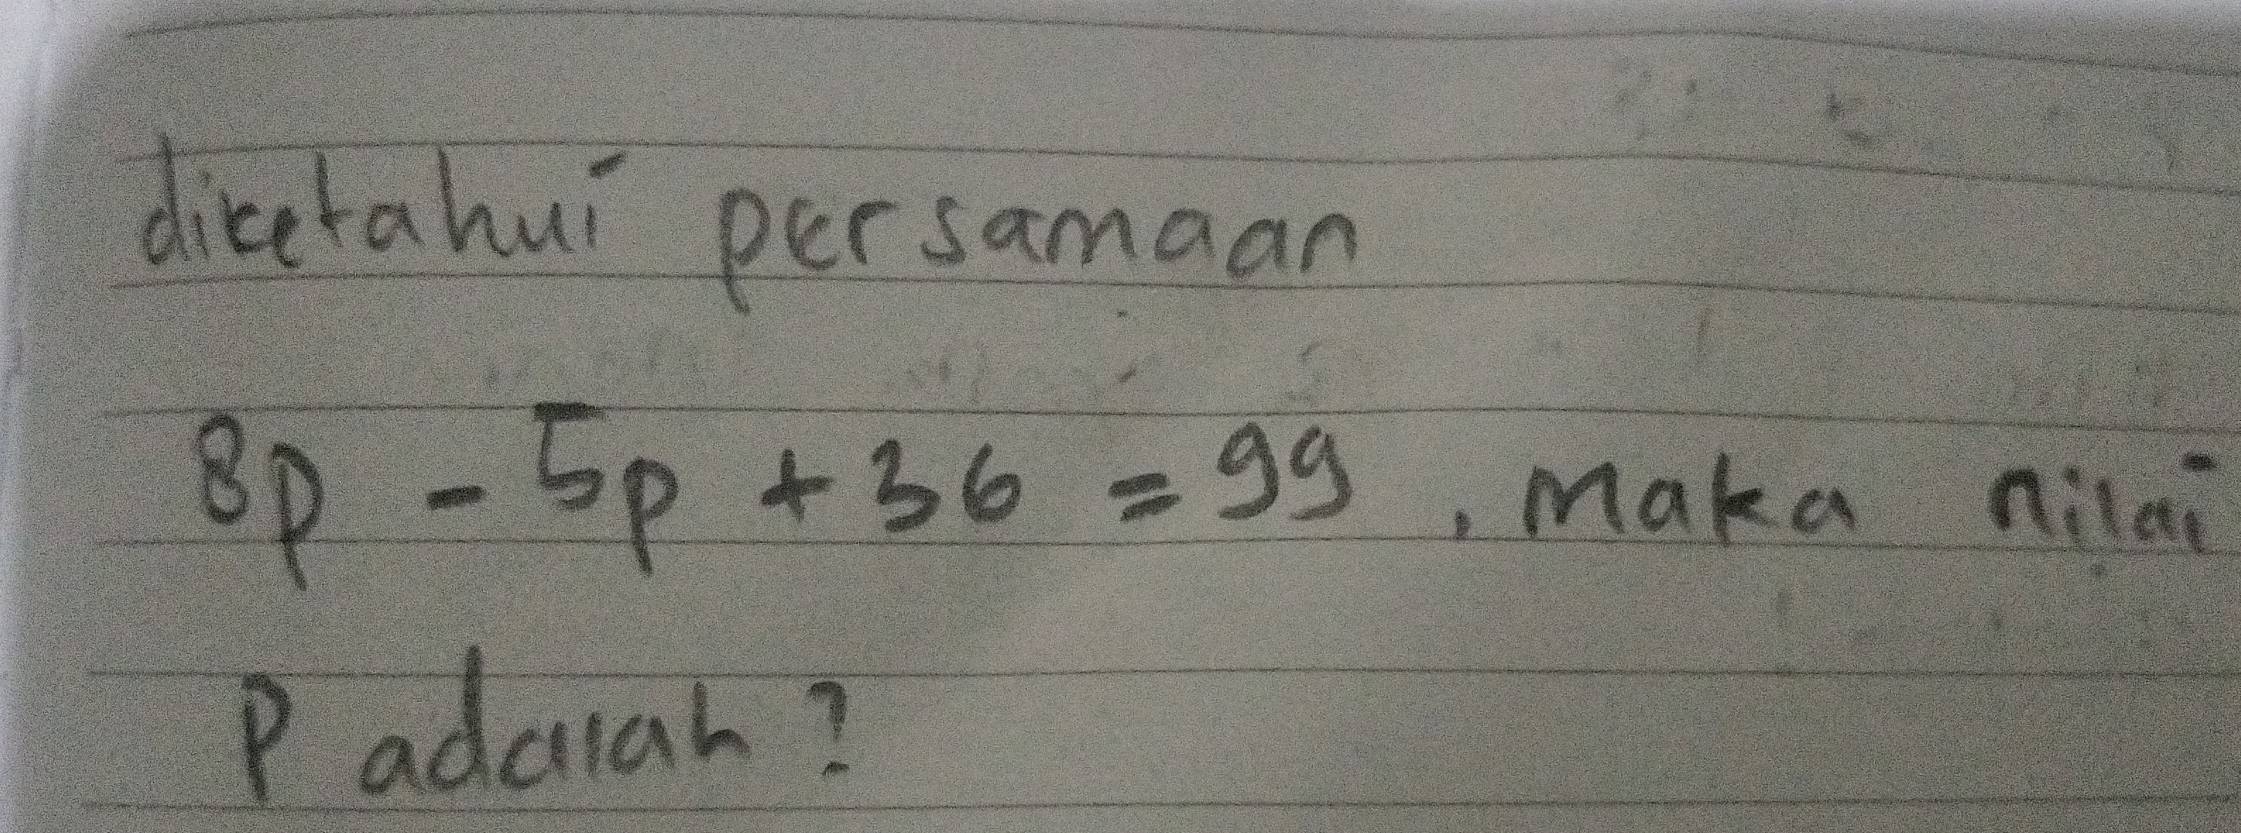 diketahui persamaan
8p - 5p + 36 = 99, Maka nilai
P adalah?